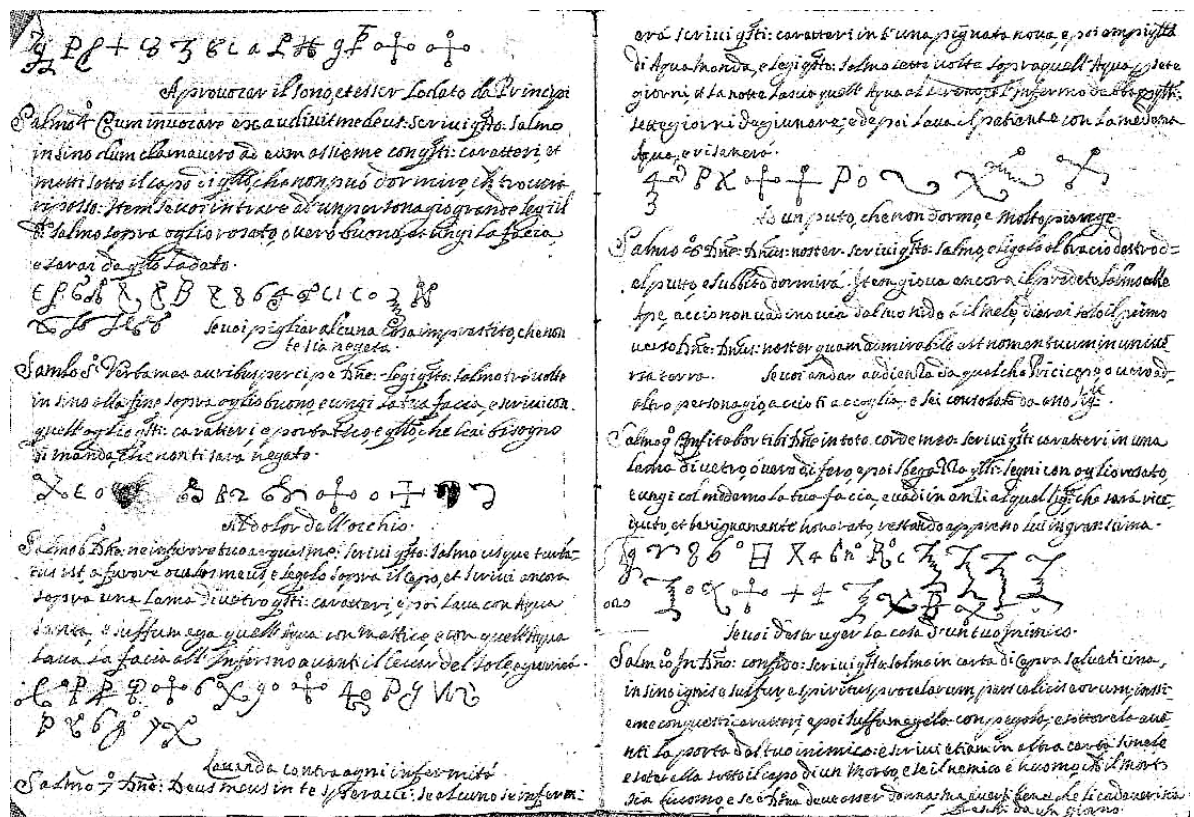 A provocar il sono, et esser Lodato da Principi
Salmo 4. Cum invocarem exaudivit me deus: scrivi q̃sto: salmo
in sino dum clamavero ad eum assieme con q̃sti: caratteri, et
metti sotto il capo di q̃llo, che non può dormire, ch
riposo: Item se voi intrare ad un personagio grande legi il
salmo, sopra oglio rosato, overo buono, et ungi la faccia,
e serai da q̃llo Lodato.
Se voi pigliar alcuna Cosa imprestito, che non
te sia negeta.
Samlo 5. Verba mea auribus percipe Dñe: legi q̃sto: salmo tre volte
in sino alla fine sopra oglio buono, e ungi la tua facia, e scrivi con
quell'oglio q̃sti: caratteri, e porta teco e q̃llo, che hai bisogno
dimanda, che non ti sarà negato.
Al dolor dell'occhio.
Salmo 6 Dñe: ne in furore tuo arguas me: scrivi q̃sto: salmo usque turba-
tus est, a furore oculus meus, e legelo sopra il capo, et scrivi ancora
sopra una Lama di vetro q̃sti: caratteri, e poi Lava con Aqua
santa, e suffumega quell'Aqua con mastice, e con quell'Aqua
Lava la facia all'Infermo avanti il Levar del sole, e guarirà.
Lavanda contra ogni infermità
Salmo 7 Dñe: Deus meus in te speravi: se alcuno se inferm:
erà scrivi q̃sti: caratteri in t'una pignata nova, e poi empi
di Aqua monda, e legi q̃sto: salmo sette volte sopra quell'Aqua p sete
giorni, et la notte lascia quell'Aqua al sereno, e l'infermo
sette giorni degiunare, e da poi Lava il patiente con la medema
Aqua, e risanerà.
Se un puto, che non dorme, e molto piange.
Salmo 8 Dñe: Dñus: noster: scrivi q̃sto: salmo, e ligalo al bracio destro d-
el putto, e subbito dormirà. Item giova ancora il predeto salmo alle
Ape, acciò non vadino via dal suo nido e il mele, dicerai solo il primo
verso Dñe: Dñus: noster quam admirabile est nomen tuum in univer
rsa terra. Se voi andar audienza da qualche Principe, o vero ad
altro personagio, acciò ti accoglia, e sei consolato da esso
Salmo 9 Confitebor tibi Dñe in toto corde meo: scrivi q̃sti caratteri in una
lama di vetro, ó vero di fero, e poi q̃lli: segni con oglio rosato,
e ungi col medemo la tua facia, e vadi inanti a quell che sarà rice-
vuto, et benignamente honorato, restando appreso lui in gran stima.
Se voi destruger la casa d'un tuo inimico.
Salm: 10 In Dño: confido: scrivi q̃sto salmo in carta di Capra salvaticina,
in sino ignis e sulfur, e spiritus procelarum, pars calicis eorum, inssi-
eme con questi caratteri, e poi suffumegela con pegola, e sotterela ava-
nti la porta dal tuo inimico: e scrivi etiam in altra carta simele
e soterella sotto il capo di un Morto, e se il nemico é huomo, ch il morto
sia huomo, e se è Dõna deve esser donna, ma averti bene, che il cadavero sia
fresco da un giorno.